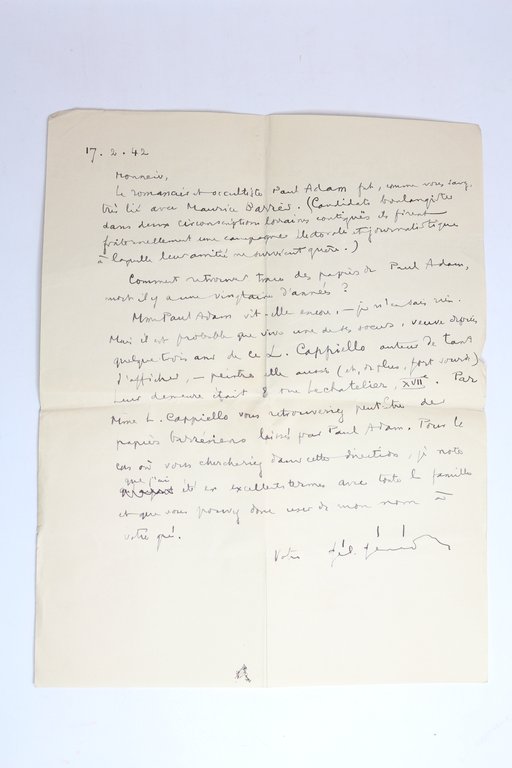 17.2.42
Monsieur,
Le romancier et occultiste Paul Adam fut, comme vous savez,
très lié avec Maurice Barrès. (Candidats boulangistes
dans deux circonscriptions lorraines contiguës ils firent
fraternellement une campagne électorale et journalistique
à laquelle leur amitié ne survécut guère.)
Comment retrouver trace des papiers de Paul Adam,
mort il y a une vingtaine d'années ?
Mme Paul Adam vit-elle encore, – je n'en sais rien.
Mais il est probable que vive une de ses soeurs, veuve depuis
quelque trois ans de ce L. Cappiello auteur de tant
d'affiches, – peintre elle aussi (et, de plus, fort sourde)
Leur demeure était 8 rue Lechatelier, XVIIe. Par
Mme L. Cappiello vous retrouveriez peut-être de
papiers barrésiens laissés par Paul Adam. Pour le
cas où vous chercheriez dans cette direction, je note
que j'ai
été en excellents termes avec toute la famille
et que vous pouvez donc user de mon nom à
votre gré.
Votre